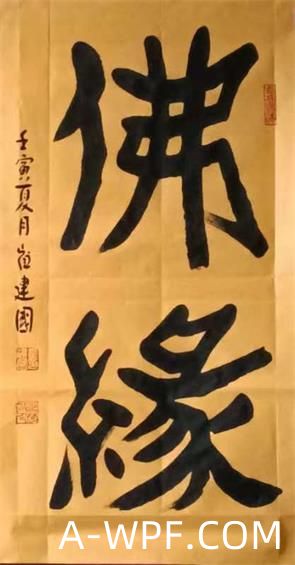 佛緣
壬寅夏月崔建國
A-WPF.COM